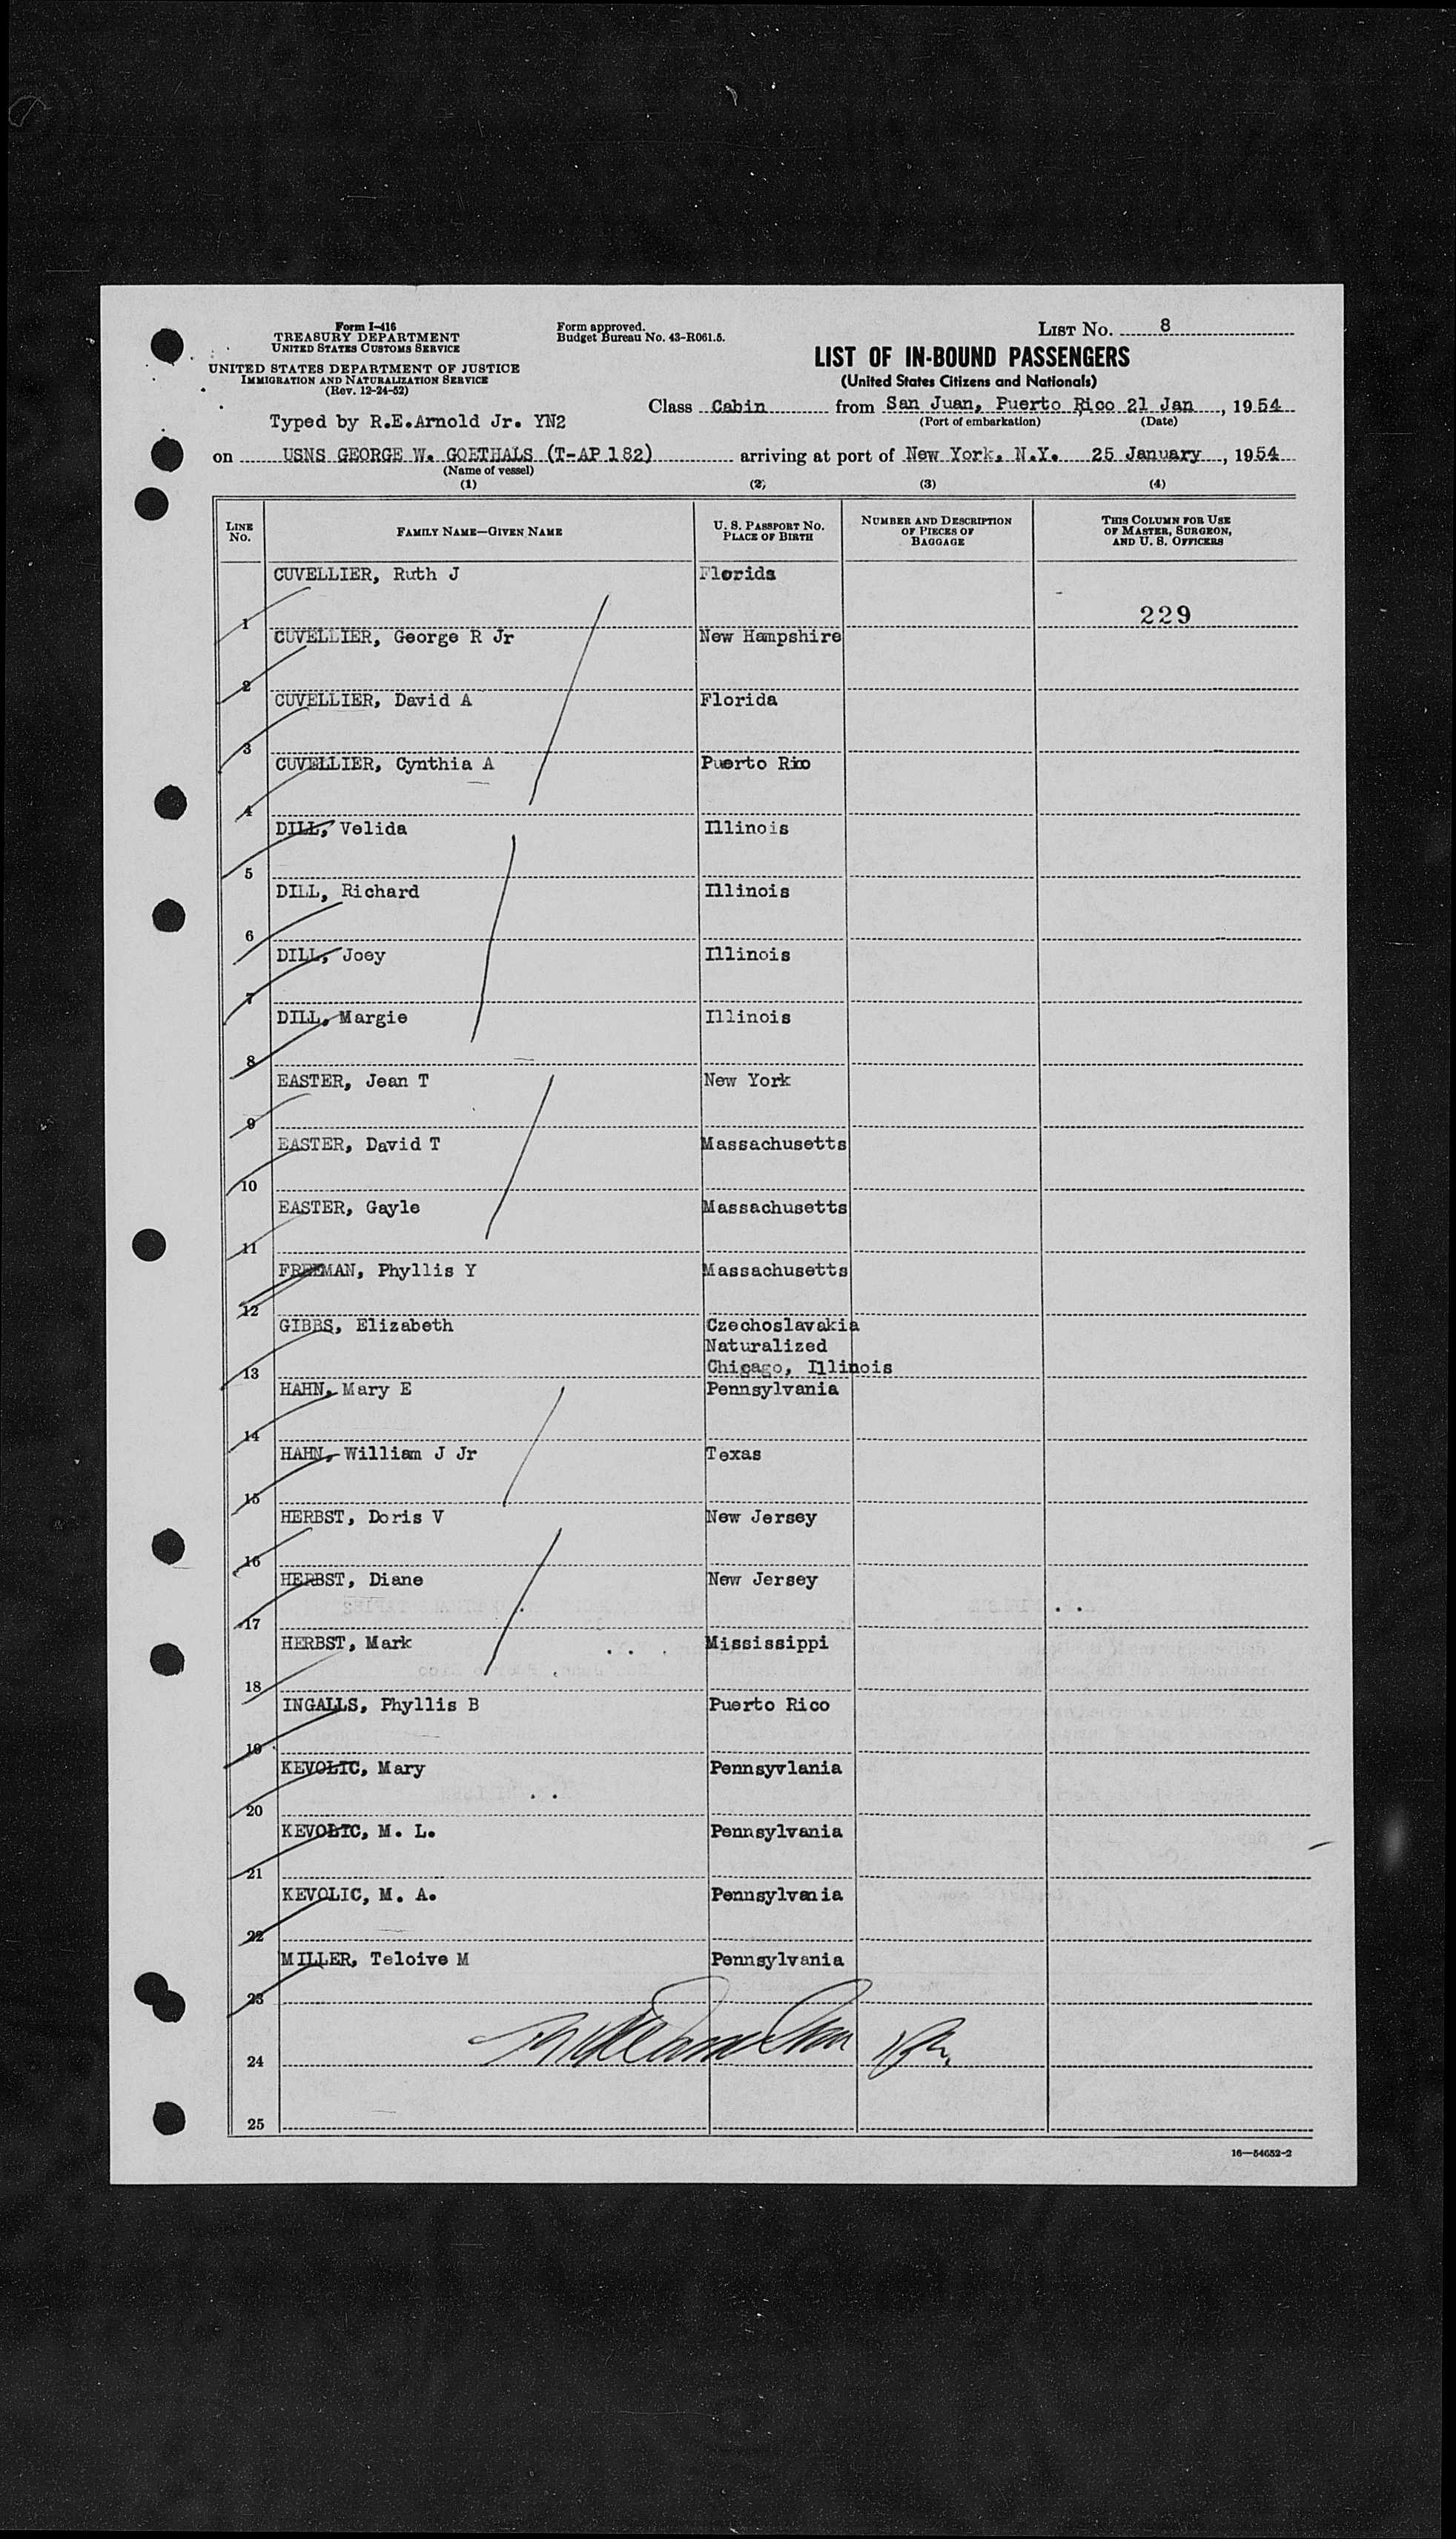 Form I-416
TREASURY DEPARTMENT
UNITED STATES CUSTOMS SERVICE
UNITED STATES DEPARTMENT OF JUSTICE
IMMIGRATION AND NATURALIZATION SERVICE
(Rev. 12-24-52)
Form approved.
Budget Bureau No. 43-R061.5.
LIST NO. 8
LIST OF IN-BOUND PASSENGERS
(United States Citizens and Nationals)
Class Cabin from San Juan, Puerto Rico 21 Jan, 1954
(Port of embarkation) (Date)
Typed by R.E.Arnold Jr. YN2
on USNS GEORGE W. GOETHALS (T-AP 182) arriving at port of New York, N.Y. 25 January, 1954
(Name of vessel)
(1) (2) (3) (4)
LINE NO. FAMILY NAME—GIVEN NAME U. S. PASSPORT NO. PLACE OF BIRTH NUMBER AND DESCRIPTION OF PIECES OF BAGGAGE THIS COLUMN FOR USE OF MASTER, SURGEON, AND U. S. OFFICERS
1 CUVELLIER, Ruth J Florida 229
2 CUVELLIER, George R Jr New Hampshire
3 CUVELLIER, David A Florida
4 CUVELLIER, Cynthia A Puerto Rico
5 DILL, Velida Illinois
6 DILL, Richard Illinois
7 DILL, Joey Illinois
8 DILL, Margie Illinois
9 EASTER, Jean T New York
10 EASTER, David T Massachusetts
11 EASTER, Gayle Massachusetts
12 FREEMAN, Phyllis Y Massachusetts
13 GIBBS, Elizabeth Czechoslavakia
Naturalized
Chicago, Illinois
14 HAHN, Mary E Pennsylvania
15 HAHN, William J Jr Texas
16 HERBST, Doris V New Jersey
17 HERBST, Diane New Jersey
18 HERBST, Mark Mississippi
19 INGALLS, Phyllis B Puerto Rico
20 KEVOLIC, Mary Pennsyvlania
21 KEVOLIC, M. L. Pennsylvania
22 KEVOLIC, M. A. Pennsylvania
23 MILLER, Teloive M Pennsylvania
24
25
16—54652-2